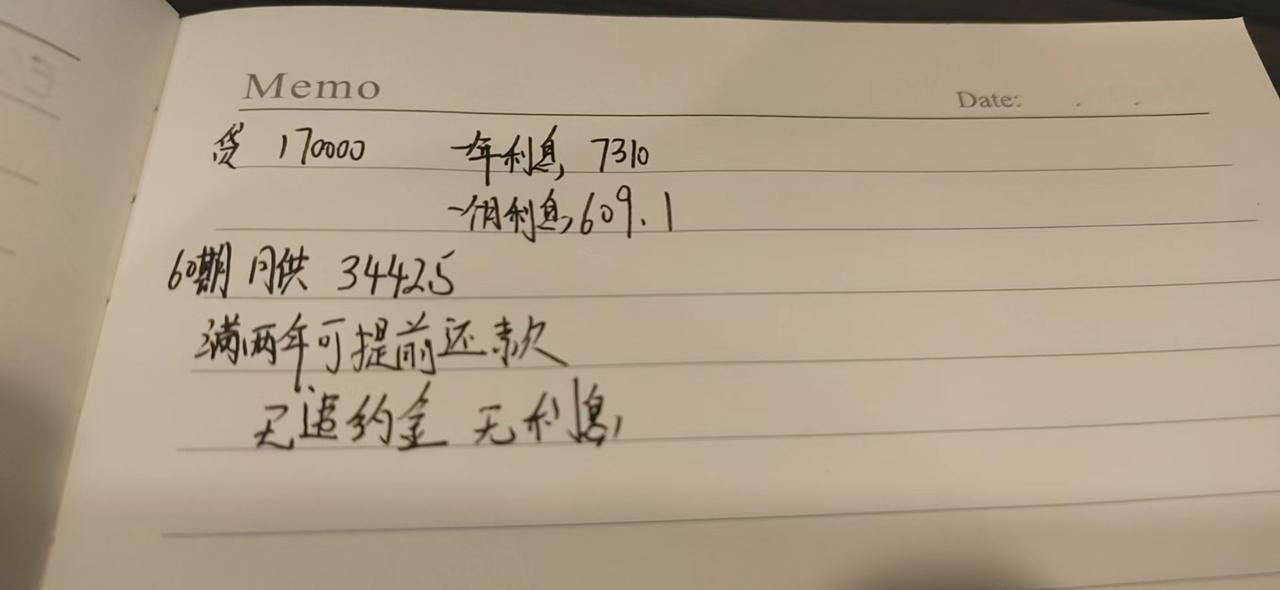 Memo
Date:
贷 170000 一年利息, 7310
一个月利息, 609.1
60期 月供 34425
满两年可提前还款
无违约金 无利息,